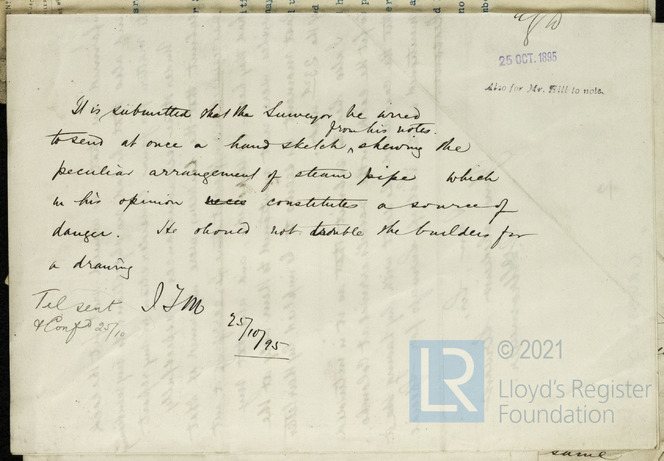 25 OCT. 1895
Also for Mr. Hill to note.
It is submitted that the Surveyor be wired
to send at once a hand sketch, from his notes, shewing the
peculiar arrangement of steam pipe which
in his opinion constitutes a source of
danger. He should not trouble the builders for
a drawing
Tel sent
& Confd 25/10
25/10/95
© 2021
LR
Lloyd's Register
Foundation
same